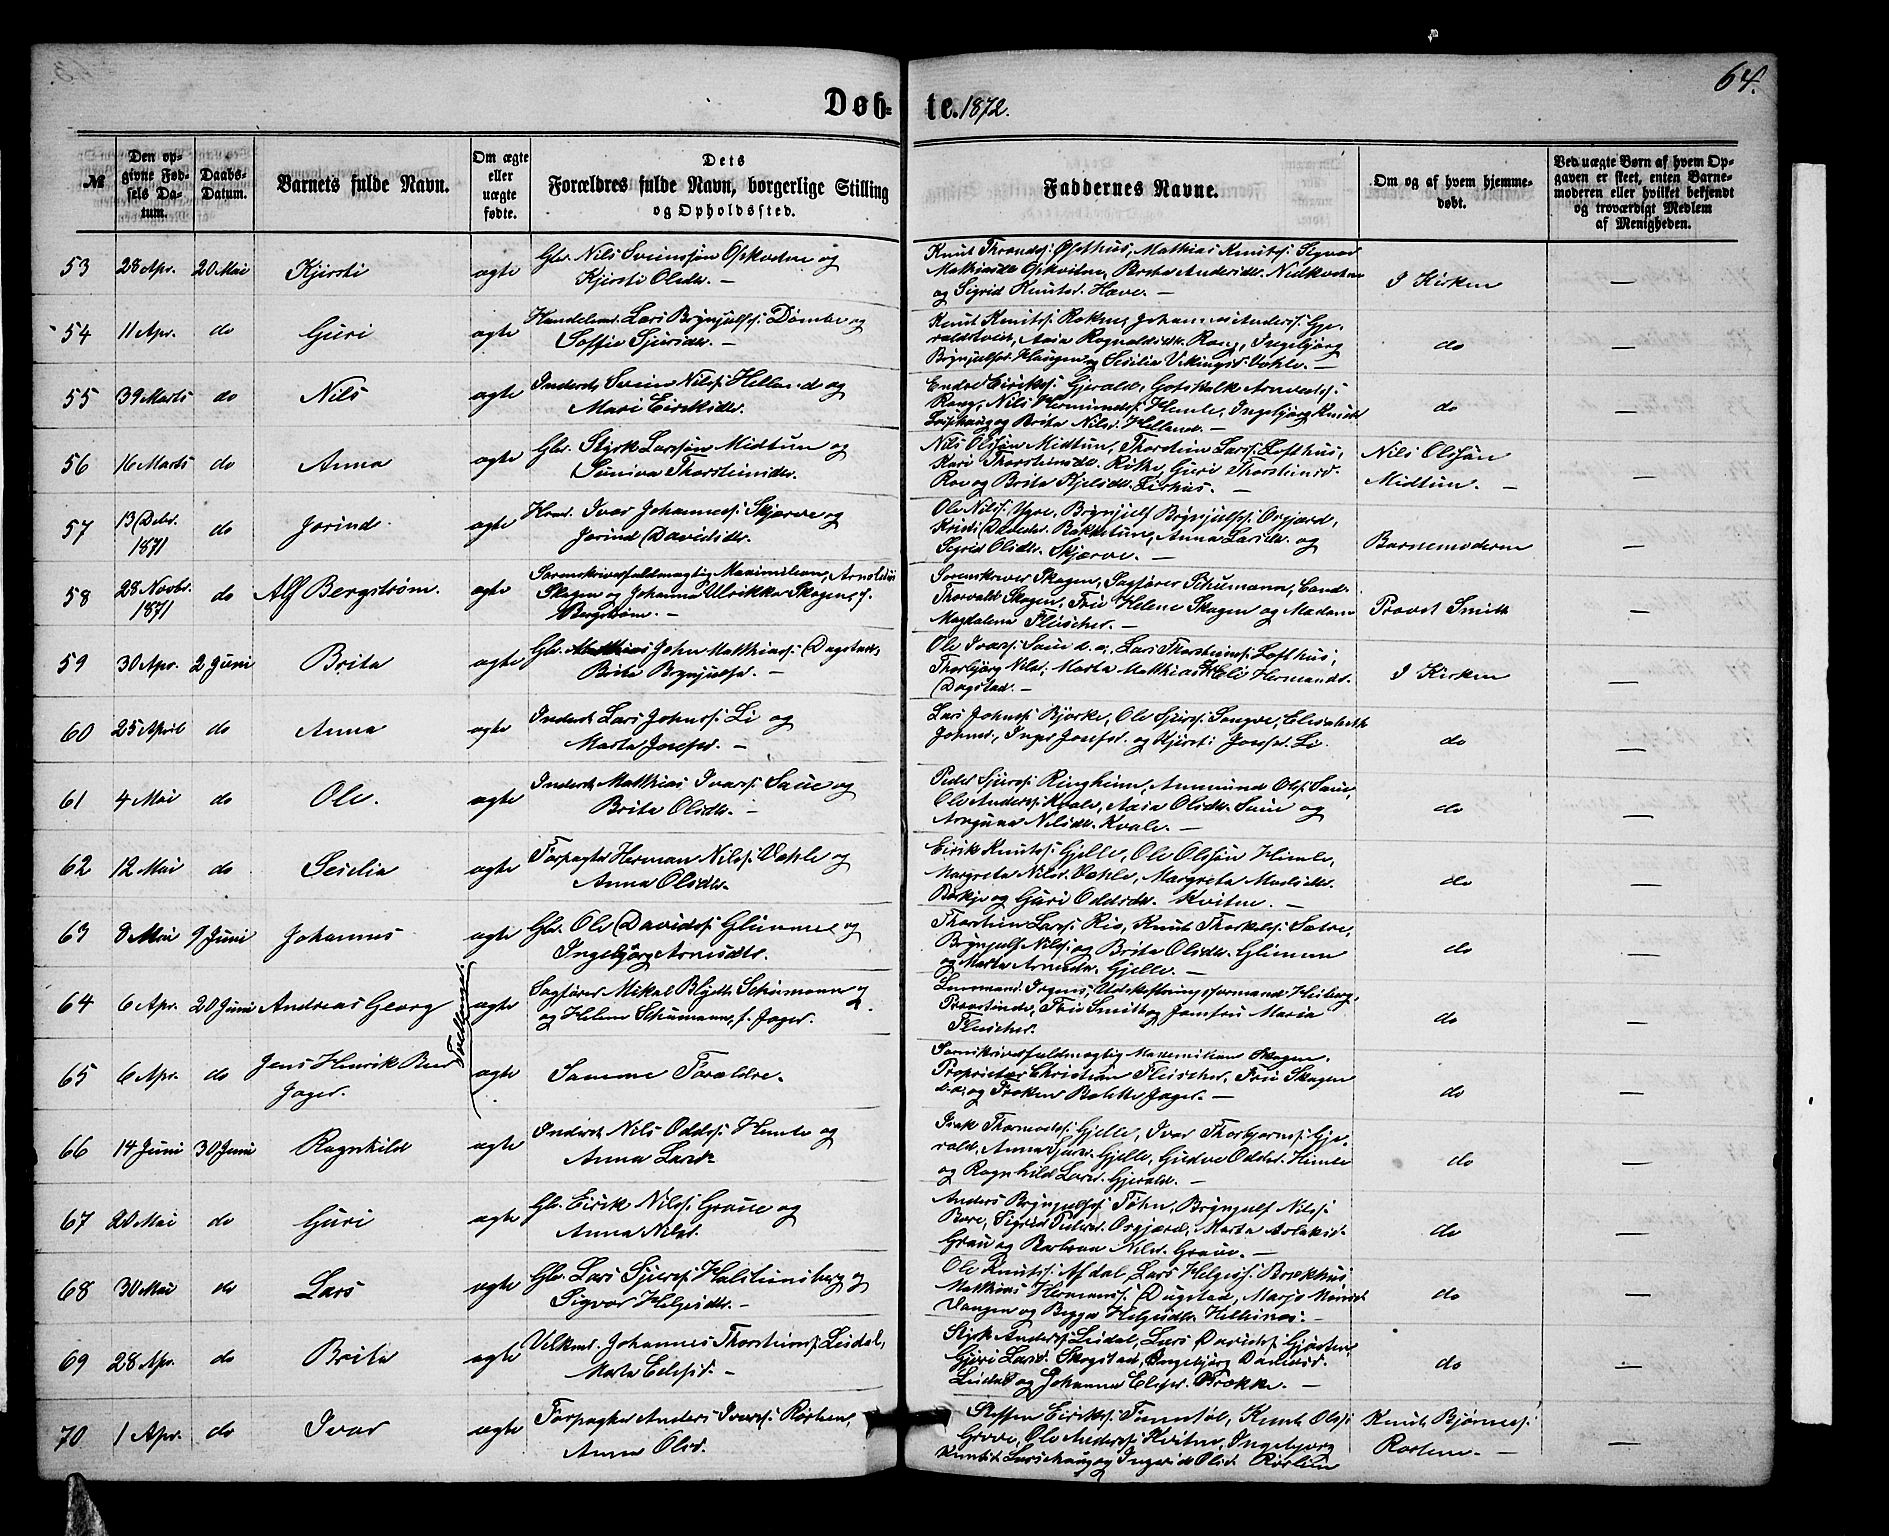 64.
Døb-te. 1872.
№
Den op-
givne Fød-
sels Da-
tum.
Daabs-
Datum.
Barnets fulde Navn.
Om ægte
eller
uægte
fødte.
Dets
Forældres fulde Navn, borgerlige Stilling
og Opholdssted.
Faddernes Navne.
Om og af hvem hjemme-
døbt.
Ved uægte Børn af hvem Op-
gaven er skeet, enten Barne-
moderen eller hvilket bekjendt
og troværdigt Medlem
af Menigheden.
53 28 Apr. 20 Mai Kjersti ægte Gbr. Nils Svensøn Opkvitne og
Kjersti Olsdr. —
Knut Throndss. Østhus, Mathias Knutss. Sigvor
Mathiasdr. Opkvitne, Brita Andersdr. Nedkvitne
og Sigrid Knutsd. Hæve. —
I Kirken —
54 11 Apr. do Guri ægte Handelsm. Lars Brynjulfss. Dømbe og
Soffie Sjursdr. —
Knut Knutss. Rokne, Johannes Anderss. Gje-
raldstveit, Aasa Rognaldsdr. Rong, Ingebjørg
Brynjulfsd. Haugen og Sesilia Vikingsd. Væhle. —
do —
55 39 Marts do Nils ægte Inderst Svein Nilss. Helland og
Mari Eiriksdr.
Endre Eirikss. Gjerald, Gotskalk Arnvedss.
Rong, Nils Hermundss. Hemle, Ingebjørg Knutsd.
og Brita Nilsd. Helland. —
do —
56 16 Marts do Anna ægte Gbr. Styrk Larssøn Midtun og
Suniva Thorsteinsdr.
Nils Olssøn Midtun, Thorstein Larss. Lofthus,
Kari Thorsteinsdr. Rikhe, Guri Thorsteinsd.
Roe og Brita Kjelsdr. Lirhus. —
Nils Olssøn
Midtun. —
—
57 13 Debr.
1871 do Jorind ægte Hmd. Ivar Johanness. Skjerve og
Jorind Davidsdr.
Ole Nilss. Ygre, Brynjulf Brynjulfss. Orgjærd,
Kristi Davidsdr. Bakketun, Anna Larsdr. og
Sigrid Olsdr. Skjerve. —
Barnemoderen —
58 28 Novbr.
1871 do Alf Bergstrøm. ægte Sorenskriverfuldmægtig Maximilian Arnoldus
Skagen og Johanna Ulrikka Skagen, f.
Bergstrøm. —
Sorenskriver Skagen, Sagfører Schumann, Cand.
Thorvald Skagen, Fru Helene Skagen og Madam
Magdalena Fleischer. —
Provst Smith —
59 30 Apr. 2 Juni Brita ægte Gbr. John Matthiass. Dagstad,
Brita Brynjulfsd. —
Ole Ivarss. Saue d. æ., Lars Thorsteinss. Lofthus,
Thorbjørg Nilsd., Marta Matthiasd., Eli Hermundsd.
Dagstad. —
I Kirken —
60 25 April do Anna ægte Inderst Lars Johnss. Li og
Marta Josefsd. —
Lars Johnss. Bjørke, Ole Sjurss. Songve, Elisabeth
Johnsd., Inger Josefsd. og Kjersti Josefsd. Li.
do —
61 4 Mai do Ole. ægte Inderst Matthias Ivarss. Saue og
Brita Olsdr. —
Peder Sjurss. Ringheim, Ammund Olss. Saue,
Ole Anderss. Kvale, Aasa Olsdr. Saue og
Arnguna Nilsdr. Kvale. —
do —
62 12 Mai do Sesilia ægte Forpagter Herman Nilss. Væhle og
Anna Olsdr.
Eirik Knutss. Gjelle, Ole Olssøn Himle,
Margreta Nilsd. Væhle, Margreta Madsdr.
Bøkje og Guri Oddsdr. Kvitne. —
do —
63 8 Mai 9 Juni Johannes ægte Gbr. Ole Davidss. Glimme og
Ingebjørg Arnesdr.
Thorstein Larss. Rio, Knut Thorkelss. Sætre,
Brynjulf Nilss. og Brita Olsdr. Glimme
og Marta Arnesdr. Gjelle. —
do —
64 6 Apr. 20 Juni Andreas Georg ægte Sagfører Mikal Blydt Schumann og
og Helene Schumann, f. Jæger.
Lensmand Irgens, Udskiftningsformand Heiberg,
Provstinde, Fru Smith og Jomfru Maria
Fleischer.
do —
Tvillinger
65 6 Apr. do Jens Henrik Buer
Jæger. ægte Samme Forældre.
Sorenskriverfuldmægtig Maximilian Skagen,
Proprietær Christian Fleischer, Fru Skagen
d. æ. og Frøken Bolette Jæger. —
do —
66 14 Juni 30 Juni Ragnhild ægte Inderst Nils Oddss. Hemle og
Anna Larsd.
Isak Thormodss. Gjelle, Ivar Thorbjørnss. Gje-
rald, Anna Sjursd. Gjelle, Gudve Oddsd. Himle
og Ragnhild Larsd. Gjerald. —
do —
67 20 Mai do Guri ægte Gbr. Eirik Nilss. Graue og
Anna Nilsd.
Anders Brynjulfss. Føhn, Brynjulf Nilss.
Børe, Sigrid Pedersd. Orgjærd, Marta Aslaksd.
Grau og Barbraa Nilsd. Graue. —
do —
68 30 Mai do Lars ægte Gbr. Lars Sjurss. Halsteinsberg og
Sigvor Helgesdr. —
Ole Knutss. Afdal, Lars Helgess. Brækhus,
Matthias Hermanss. Dugstad, Marjo Monsd.
Vangen og Bygga Helgesdr. Hellenes. —
do —
69 28 Apr. do Brita ægte Velkmd. Johannes Thorsteinss. Leidal,
Marta Eilefsd. —
Styrk Anderss. Leidal, Lars Davidss. Gjøsten,
Guri Larsd. Skogstad, Ingebjørg Davidsd.
Leidal og Johanna Elifsd. Trække. —
do —
70 1 Apr. do Ivar ægte Forpagter Anders Ivarss. Rørlien,
Anna Olsd.
Steffen Eirikss. Finnstøl, Knut Olss.
Grove, Ole Anderss. Kvitne, Ingebjørg
Knutsd. Larsehaug og Ingerid Olsd. Rørlien
Knut Bjørness.
Rørlien. —
—